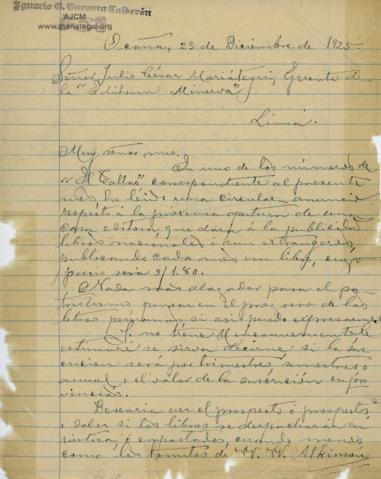 Ignacio G. Guevara Calderón
AJCM
www.mariategui.org
Ocaña, 23 de Diciembre de 1925.
Señor Julio César Mariátegui, Gerente de
la "Editorial Minerva"
Lima.
Muy señor mio:
En uno de los números de
"El Callao" correspondiente al presente
mes he leido una circular anuncio
respecto á la próxima apertura de una
casa editora, que dará á la publicidad
libros nacionales i aun extrangeros,
publicando cada mes un libro, cuyo
precio será S/1.80.
Nada más alagador para el pa-
triotismo pensar en el progreso de las
letras peruanas, si asi puedo expresarme.
Si no tiene Ud inconveniente
estimaré se sirva decirme si la sus-
crición será por trimestres, semestres o
anual i el valor de la suscrición en pro-
vincias.
Desearia ver el prospecto ó prospectos
i saber si los libros se despacharán en
rústica ó empastados, cuando menos
como los tomitos de W. W. Atkinson,